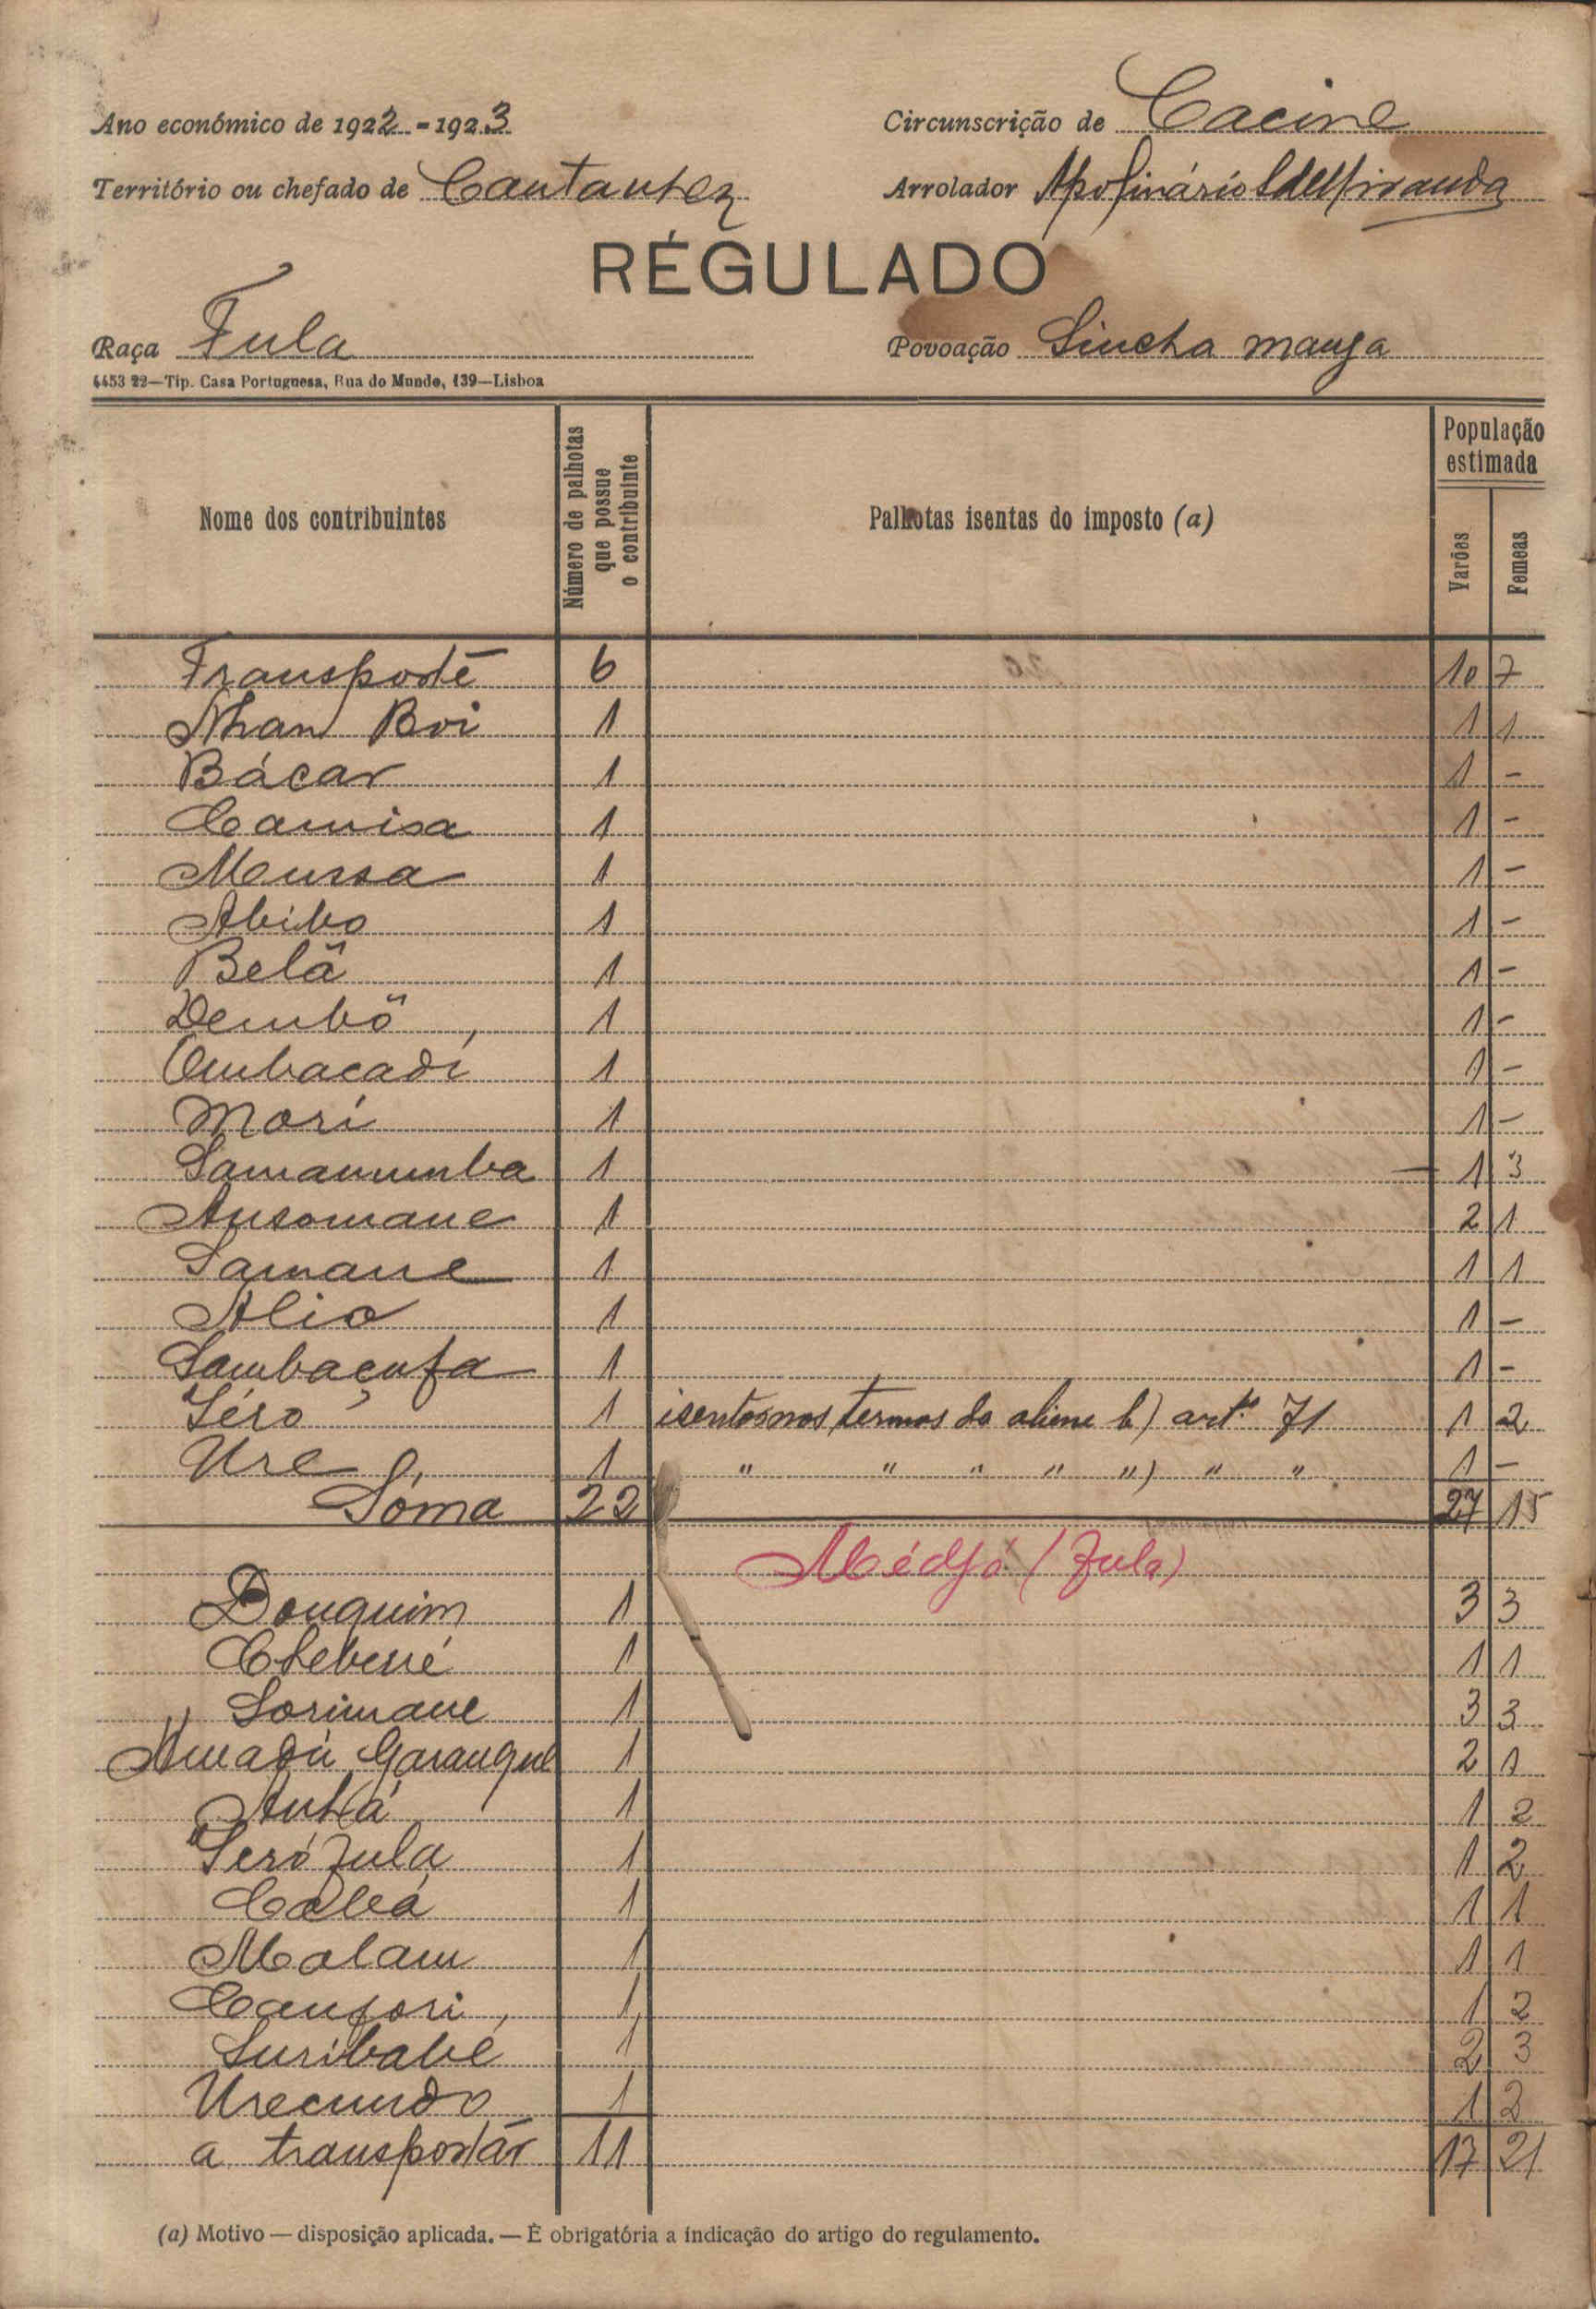 Ano económico de 1922-1923
Circunscrição de Cacine
Território ou chefado de Cantanhez
Arrolador Apolinário
RÉGULADO
Raça Fula
Povoação Sincha manga
6453 22—Tip. Casa Portuguesa, Rua do Mundo, 139—Lisboa
Nome dos contribuintes
Número de palhotas que possue o contribuinte
Palhotas isentas do imposto (a)
População estimada
Varões
Femeas
Transporte 6 10 7
Nhan Boi 1 1 1
Bácar 1 1 -
Camisa 1 1 -
Mussa 1 1 -
Abibo 1 1 -
Belã 1 1 -
Dembõ 1 1 -
Umbacadi 1 1 -
Mori 1 1 -
Samanumba 1 1 3
Ansomane 1 2 1
Samane 1 1 1
Alio 1 1 -
Sambaçufa 1 1 -
Séro 1 isentos nos termos da alinea b) artº 71 1 2
Ure 1 " " " " ") " " 1 -
Sóma 22 27 15
Médjó (Fula)
Bonquim 1 3 3
1 1 1
Sorimane 1 3 3
Amadú Garanque 1 2 1
Anhá 1 1 2
Seró Fula 1 1 2
Cabá 1 1 1
Malam 1 1 1
Canfori 1 1 2
Suribabé 1 2 3
Urecundo 1 1 2
a transportar 11 17 21
(a) Motivo — disposição aplicada. — É obrigatória a indicação do artigo do regulamento.